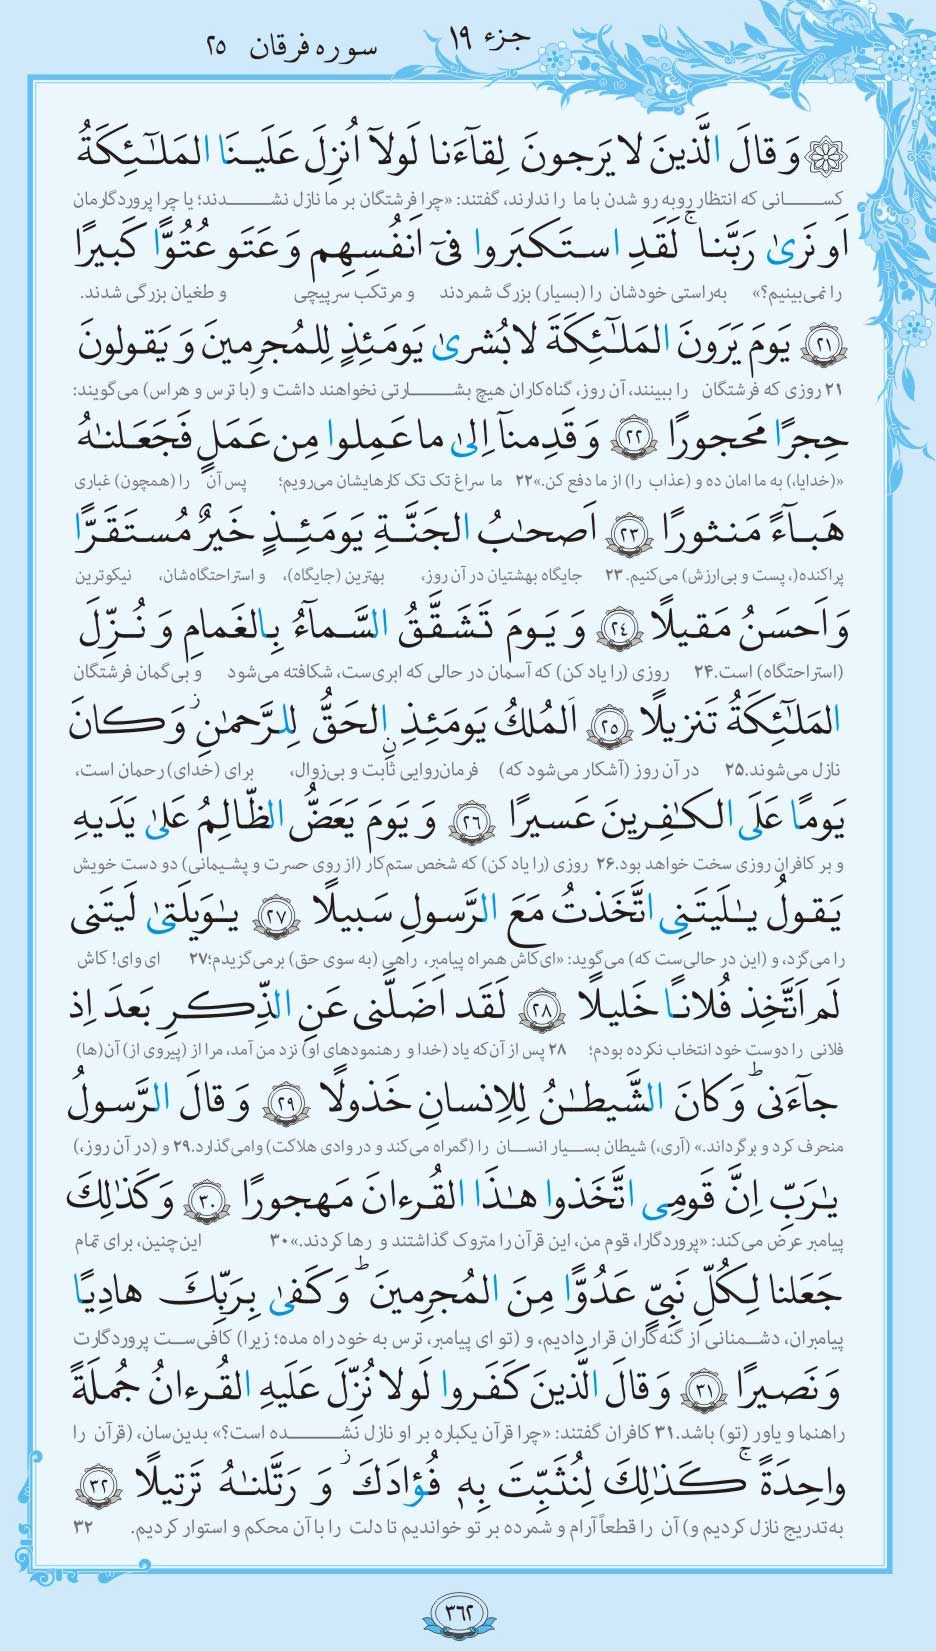 جزء ۱۹
سوره فرقان ۲۵
وَ قالَ الَّذینَ لا یَرجونَ لِقآءَنا لَولآ اُنزِلَ عَلَینَا المَلـٰٓئِکَةُ
کسـانی که انتظار روبه رو شدن با ما را ندارند، گفتند: «چرا فرشتگان بر ما نازل نشـدند؛ یا چرا پروردگارمان
اَو نَریٰ رَبَّنا ۗ لَقَدِ استَکبَروا فیٓ اَنفُسِهِم وَ عَتَو عُتُوًّا کَبیرًا
را نمی‌بینیم؟» به‌راستی خودشان را (بسیار) بزرگ شمردند و مرتکب سرپیچی و طغیان بزرگی شدند.
﴿۲۱﴾ یَومَ یَرَونَ المَلـٰٓئِکَةَ لا بُشریٰ یَومَئِذٍ لِلمُجرِمینَ وَ یَقولونَ
۲۱ روزی که فرشتگان را ببینند، آن روز، گناه‌کاران هیچ بشـارتی نخواهند داشت و (با ترس و هراس) می‌گویند:
حِجرًا مَحجورًا ﴿۲۲﴾ وَ قَدِمنآ اِلیٰ ما عَمِلوا مِن عَمَلٍ فَجَعَلنـٰهُ
«(خدایا،) به ما امان ده و (عذاب را) از ما دفع کن.»۲۲ ما سراغ تک تک کارهایشان می‌رویم؛ پس آن را (همچون) غباری
هَبـآءً مَنثورًا ﴿۲۳﴾ اَصحـٰبُ الجَنَّةِ یَومَئِذٍ خَیرٌ مُستَقَرًّا
پراکنده(، پست و بی‌ارزش) می‌کنیم. ۲۳ جایگاه بهشتیان در آن روز، بهترین (جایگاه)، و استراحتگاه‌شان، نیکوترین
وَ اَحسَنُ مَقیلًا ﴿۲۴﴾ وَ یَومَ تَشَقَّقُ السَّمآءُ بِالغَمامِ وَ نُزِّلَ
(استراحتگاه) است.۲۴ روزی (را یاد کن) که آسمان در حالی که ابری‌ست، شکافته می‌شود و بی‌گمان فرشتگان
المَلـٰٓئِکَةُ تَنزیلًا ﴿۲۵﴾ اَلمُلكُ یَومَئِذٍ ِن الحَقُّ لِلرَّحمـٰنِ ۚ وَ کانَ
نازل می‌شوند.۲۵ در آن روز (آشکار می‌شود که) فرمان‌روایی ثابت و بی‌زوال، برای (خدای) رحمان است،
یَومًا عَلَی الکـٰفِرینَ عَسیرًا ﴿۲۶﴾ وَ یَومَ یَعَضُّ الظّالِمُ عَلیٰ یَدَیهِ
و بر کافران روزی سخت خواهد بود.۲۶ روزی (را یاد کن) که شخص ستم‌کار (از روی حسرت و پشیمانی) دو دست خویش
یَقولُ یـٰلَیتَنِی اتَّخَذتُ مَعَ الرَّسولِ سَبیلًا ﴿۲۷﴾ یـٰوَیلَتیٰ لَیتَنی
را می‌گزد، و (این در حالی‌ست که) می‌گوید: «ای‌کاش همراه پیامبر، راهی (به سوی حق) برمی‌گزیدم؛۲۷ ای وای! کاش
لَم اَتَّخِذ فُلانًا خَلیلًا ﴿۲۸﴾ لَقَد اَضَلَّنی عَنِ الذِّکرِ بَعدَ اِذ
فلانی را دوست خود انتخاب نکرده بودم؛ ۲۸ پس از آن‌که یاد (خدا و رهنمودهای او) نزد من آمد، مرا از (پیروی از) آن(ها)
جآءَنی ۗ وَ کانَ الشَّیطـٰنُ لِلاِنسانِ خَذولًا ﴿۲۹﴾ وَ قالَ الرَّسولُ
منحرف کرد و برگرداند.» (آری،) شیطان بسـیار انسـان را (گمراه می‌کند و در وادی هلاکت) وامی‌گذارد.۲۹ و (در آن روز،)
یـٰرَبِّ اِنَّ قَومِی اتَّخَذوا هـٰذَا القُرءانَ مَهجورًا ﴿۳۰﴾ وَ کَذٰلِكَ
پیامبر عرض می‌کند: «پروردگارا، قوم من، این قرآن را متروک گذاشتند و رها کردند.»۳۰ این‌چنین، برای تمام
جَعَلنا لِکُلِّ نَبِیٍّ عَدُوًّا مِنَ المُجرِمینَ ۗ وَ کَفیٰ بِرَبِّكَ هادِیًا
پیامبران، دشـمنانی از گنه‌کاران قرار دادیم، و (تو ای پیامبر، ترس به خود راه مده؛ زیرا) کافی‌سـت پروردگارت
وَ نَصیرًا ﴿۳۱﴾ وَ قالَ الَّذینَ کَفَروا لَولا نُزِّلَ عَلَیهِ القُرءانُ جُملَةً
راهنما و یاور (تو) باشد.۳۱ کافران گفتند: «چرا قرآن یکباره بر او نازل نشـده است؟» بدین‌سان، (قرآن را
واحِدَةً ۚ کَذٰلِكَ لِنُثَبِّتَ بِهٖ فُؤادَكَ ۖ وَ رَتَّلنـٰهُ تَرتیلًا ﴿۳۲﴾
به‌تدریج نازل کردیم و) آن را قطعاً آرام و شمرده بر تو خواندیم تا دلت را با آن محکم و استوار کردیم. ۳۲
۳۶۲